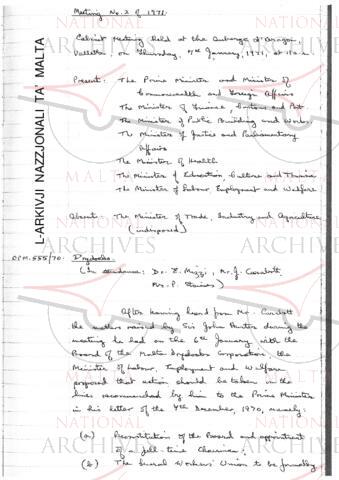 Meeting No. 2 of 1971.
Cabinet Meeting held at the Auberge d'Aragon,
Valletta, on Thursday, 7th January, 1971, at a.m.
Present: The Prime Minister and Minister of
Commonwealth and Foreign Affairs
The Minister of Finance, Customs and Port
The Minister of Public Building and Works
The Minister of Justice and Parliamentary
Affairs
The Minister of Health
The Minister of Education, Culture and Tourism
The Minister of Labour, Employment and Welfare
Absent: The Minister of Trade, Industry and Agriculture
(indisposed)
OPM.555/70. Drydocks.
(In attendance: Dr. E. Mizzi, Mr. J.
Mr. P.
After having heard from Mr.
the matters raised by Sir John Hunter during the
meeting he had on the 6th January with the
Board of the Malta Drydocks Corporation, the
Minister of Labour, Employment and Welfare
proposed that action should be taken on the
lines recommended by him to the Prime Minister
in his letter of the 4th December, 1970, namely:
(a) Reconstitution of the Board and appointment
of full-time Chairman;
(b) The General Workers' Union to be formally
L-ARKIVJI NAZZJONALI TA' MALTA
NATIONAL
ARCHIVES
MALTA